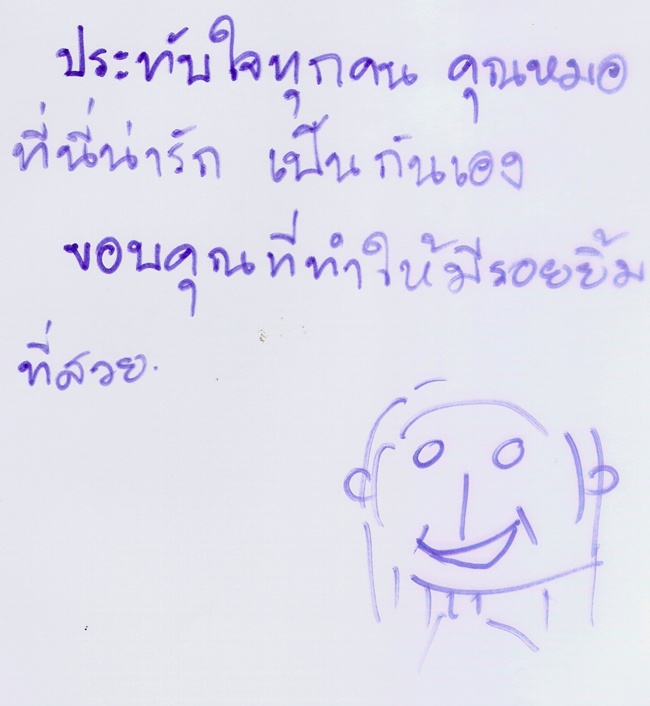 ประทับใจทุกคน คุณหมอ
ที่นี่น่ารัก เป็นกันเอง
ขอบคุณที่ทำให้มีรอยยิ้ม
ที่สวย.